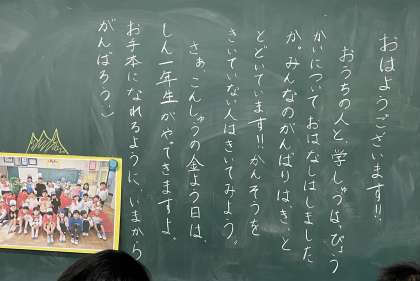 おはようございます!!
おうちの人と、学しゅうはっぴょう
かいについておはなしはしました
か。みんなのがんばりは、きっと
とどいています!!かんそうを
きいていない人はきいてみよう。
さぁ、こんしゅうの金よう日は、
しん一年生がやってきますよ。
お手本になれるように、いまから
がんばろう。